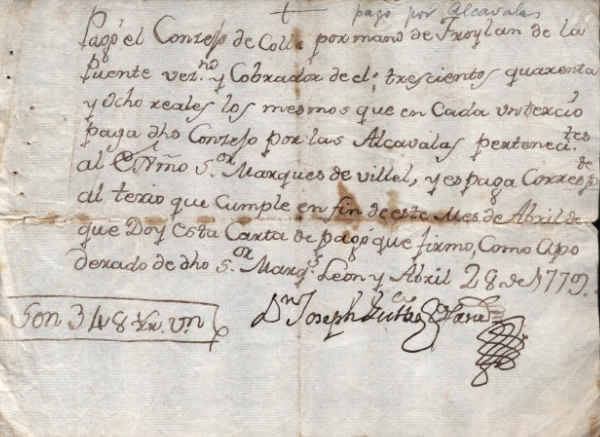 pago por Alcavalas
Pagó el Conzejo de Colle por mano de Froylan de la
Puente vez.no y Cobrador de el; trescientos quarenta
y ocho reales los mesmos que en Cada un tercio
paga dho Conzejo por las Alcavalas pertenec.tes
al Exmo S.or Marques de Villel, y es paga Corresp.de
al terio que Cumple en fin de este Mes de Abril de
que Doy esta Carta de pago que firmo, Como Apo
derado de dho S.or Marq.s Leon y Abril 28 de 1779.
Son 348 Rs. vn
Dn Joseph